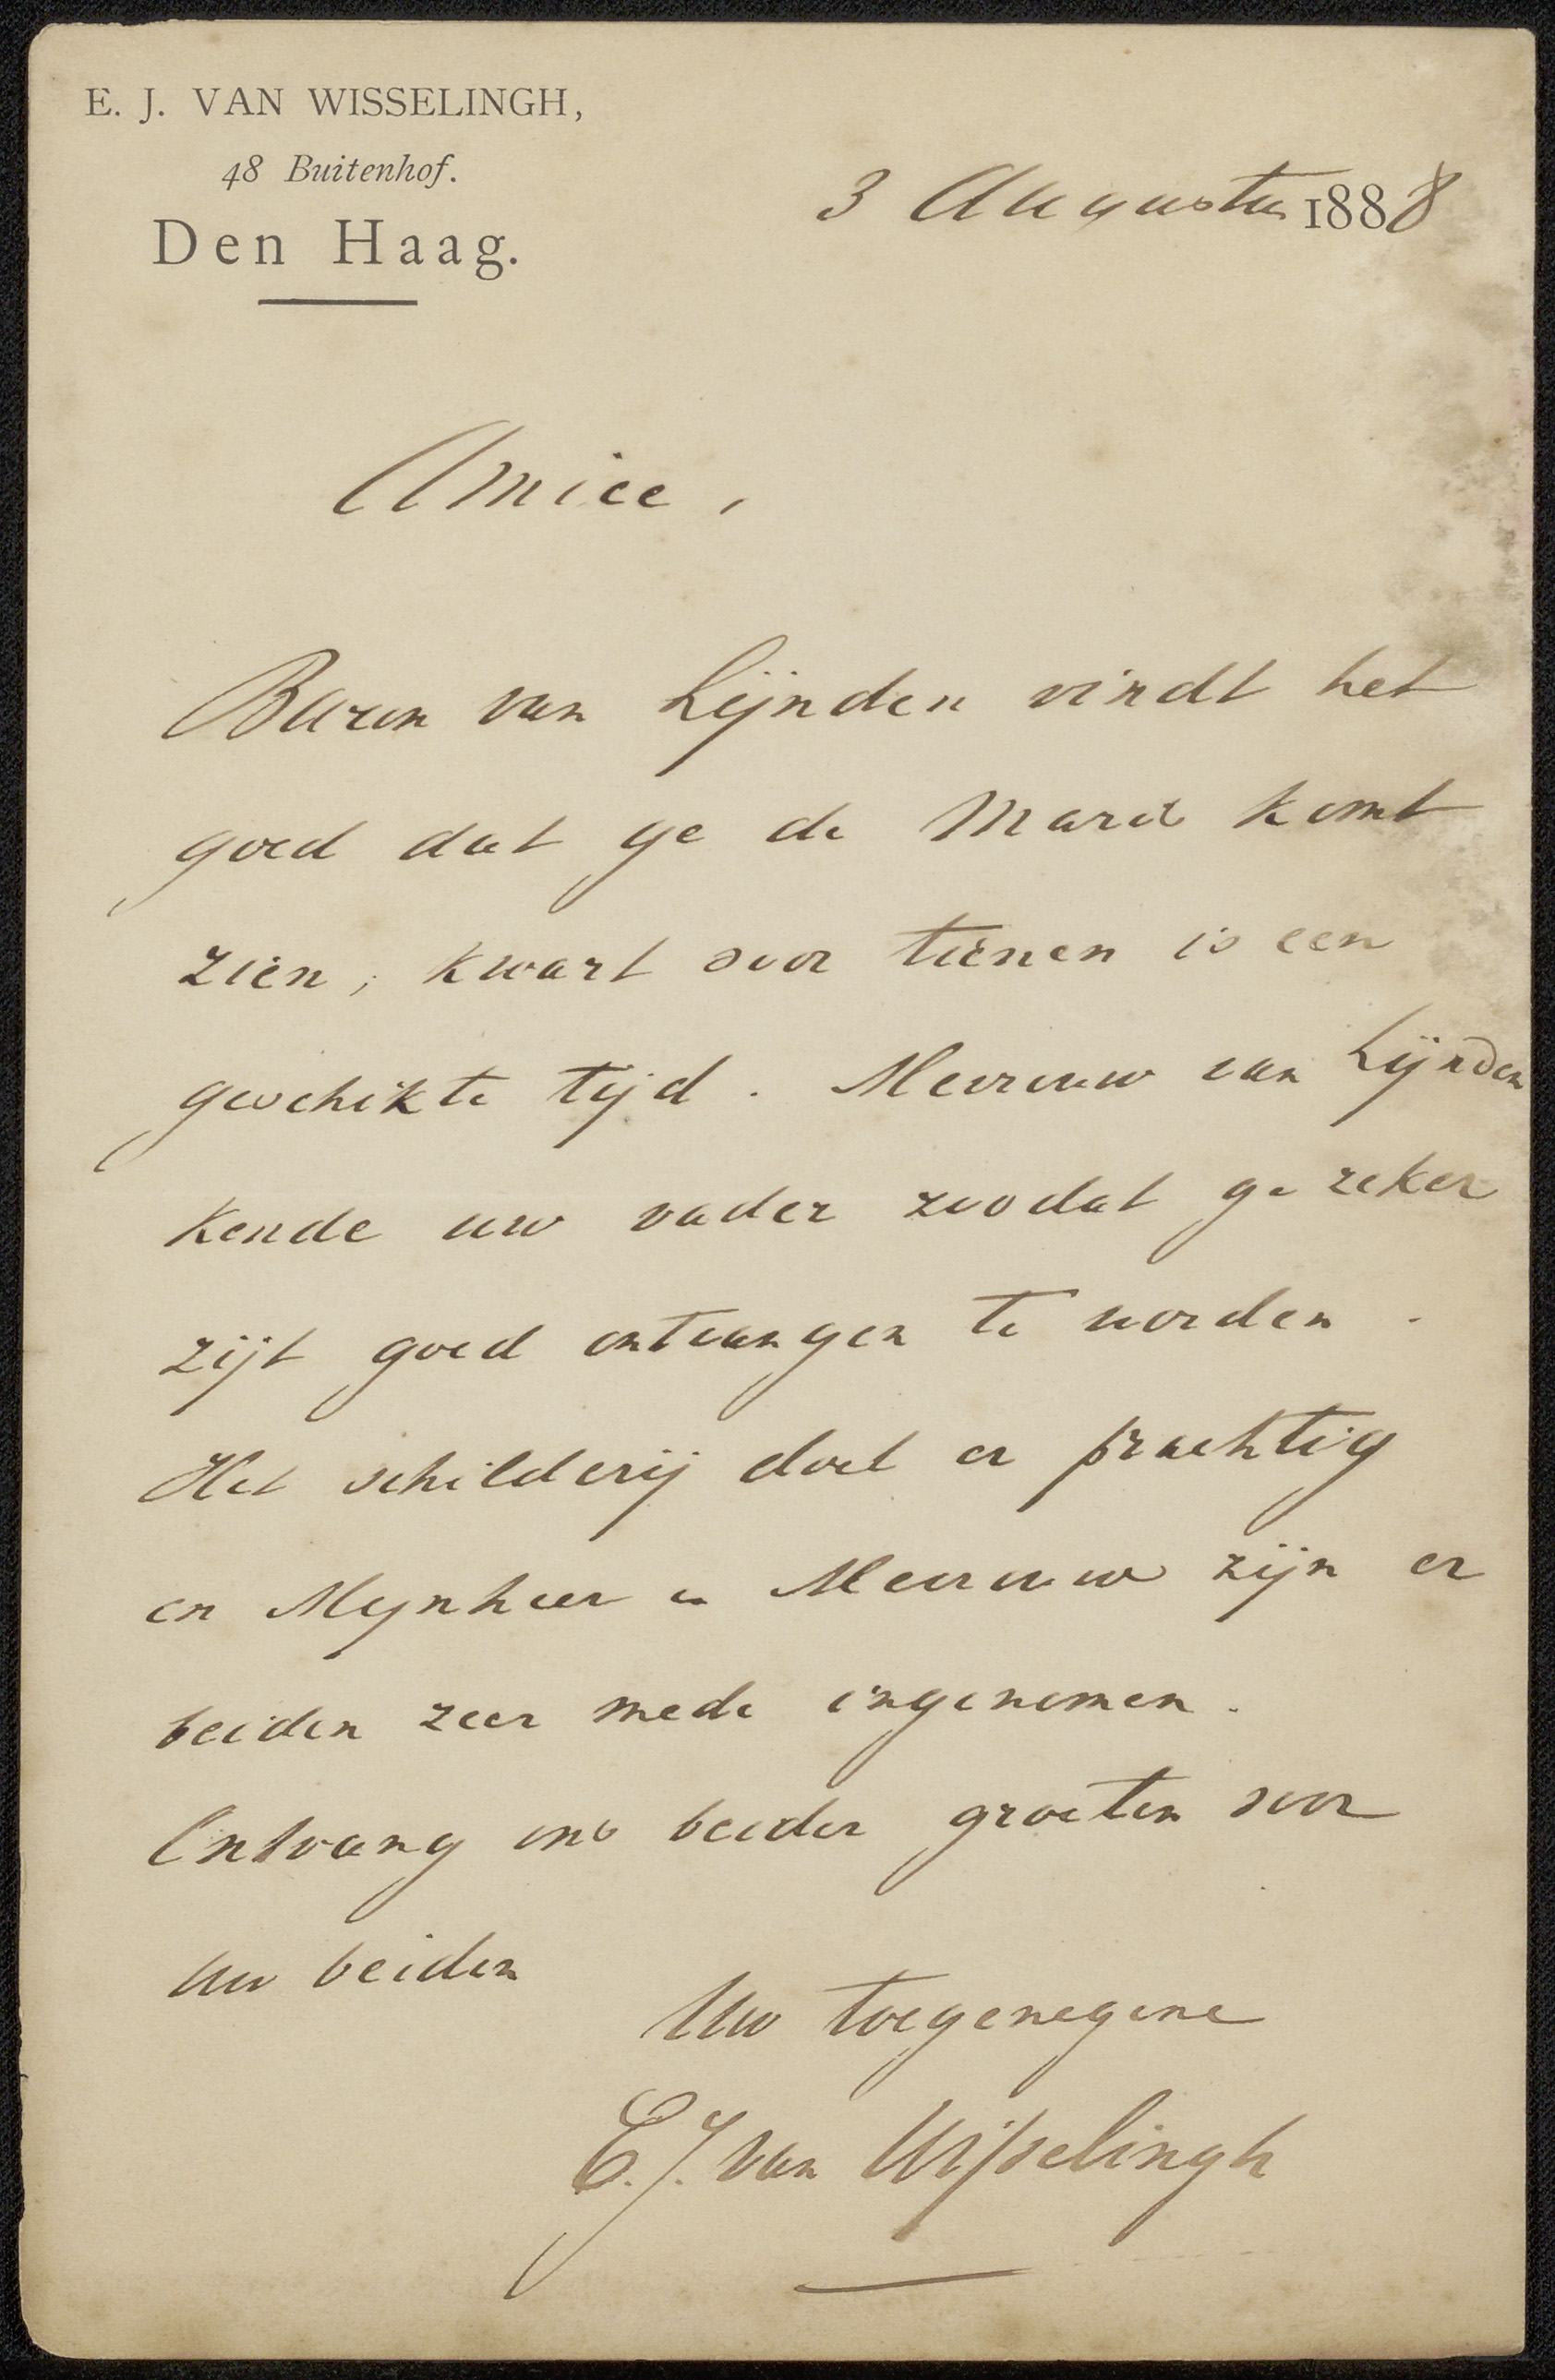 E. J. VAN WISSELINGH,
48 Buitenhof.
Den Haag.
3 Augustus 1888
Amice,
Baron van Lijnden vindt het
goed dat ge de Maris komt
zien; kwart voor tienen is een
geschikte tijd. Mevrouw van Lijnden
kende uw vader zoodat ge zeker
zijt goed ontvangen te worden.
Het schilderij doet er prachtig
en Mynheer en Mevrouw zijn er
beiden zeer mede ingenomen.
Ontvang ons beider groeten voor
uw beiden
Uw toegenegene
E. J. van Wisselingh